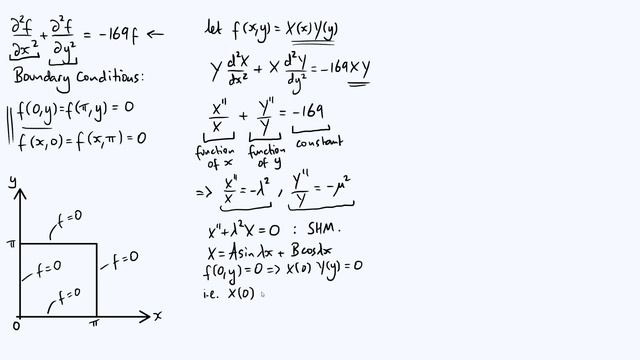 ∂²f/∂x² + ∂²f/∂y² = -169f ←
Boundary Conditions:
f(0,y)=f(π,y) = 0
f(x,0)=f(x,π)=0
y
f=0
π
f=0
f=0
f=0
0
π
x
let f(x,y) = X(x)Y(y)
Y d²X/dx² + X d²Y/dy² = -169XY
X''/X + Y''/Y = -169
function of x
function of y
constant
=> X''/X = -λ² , Y''/Y = -μ²
X''+λ²X = 0 : SHM.
X = Asinλx + Bcosλx
f(0,y)=0 => X(0) Y(y) = 0
i.e. X(0)